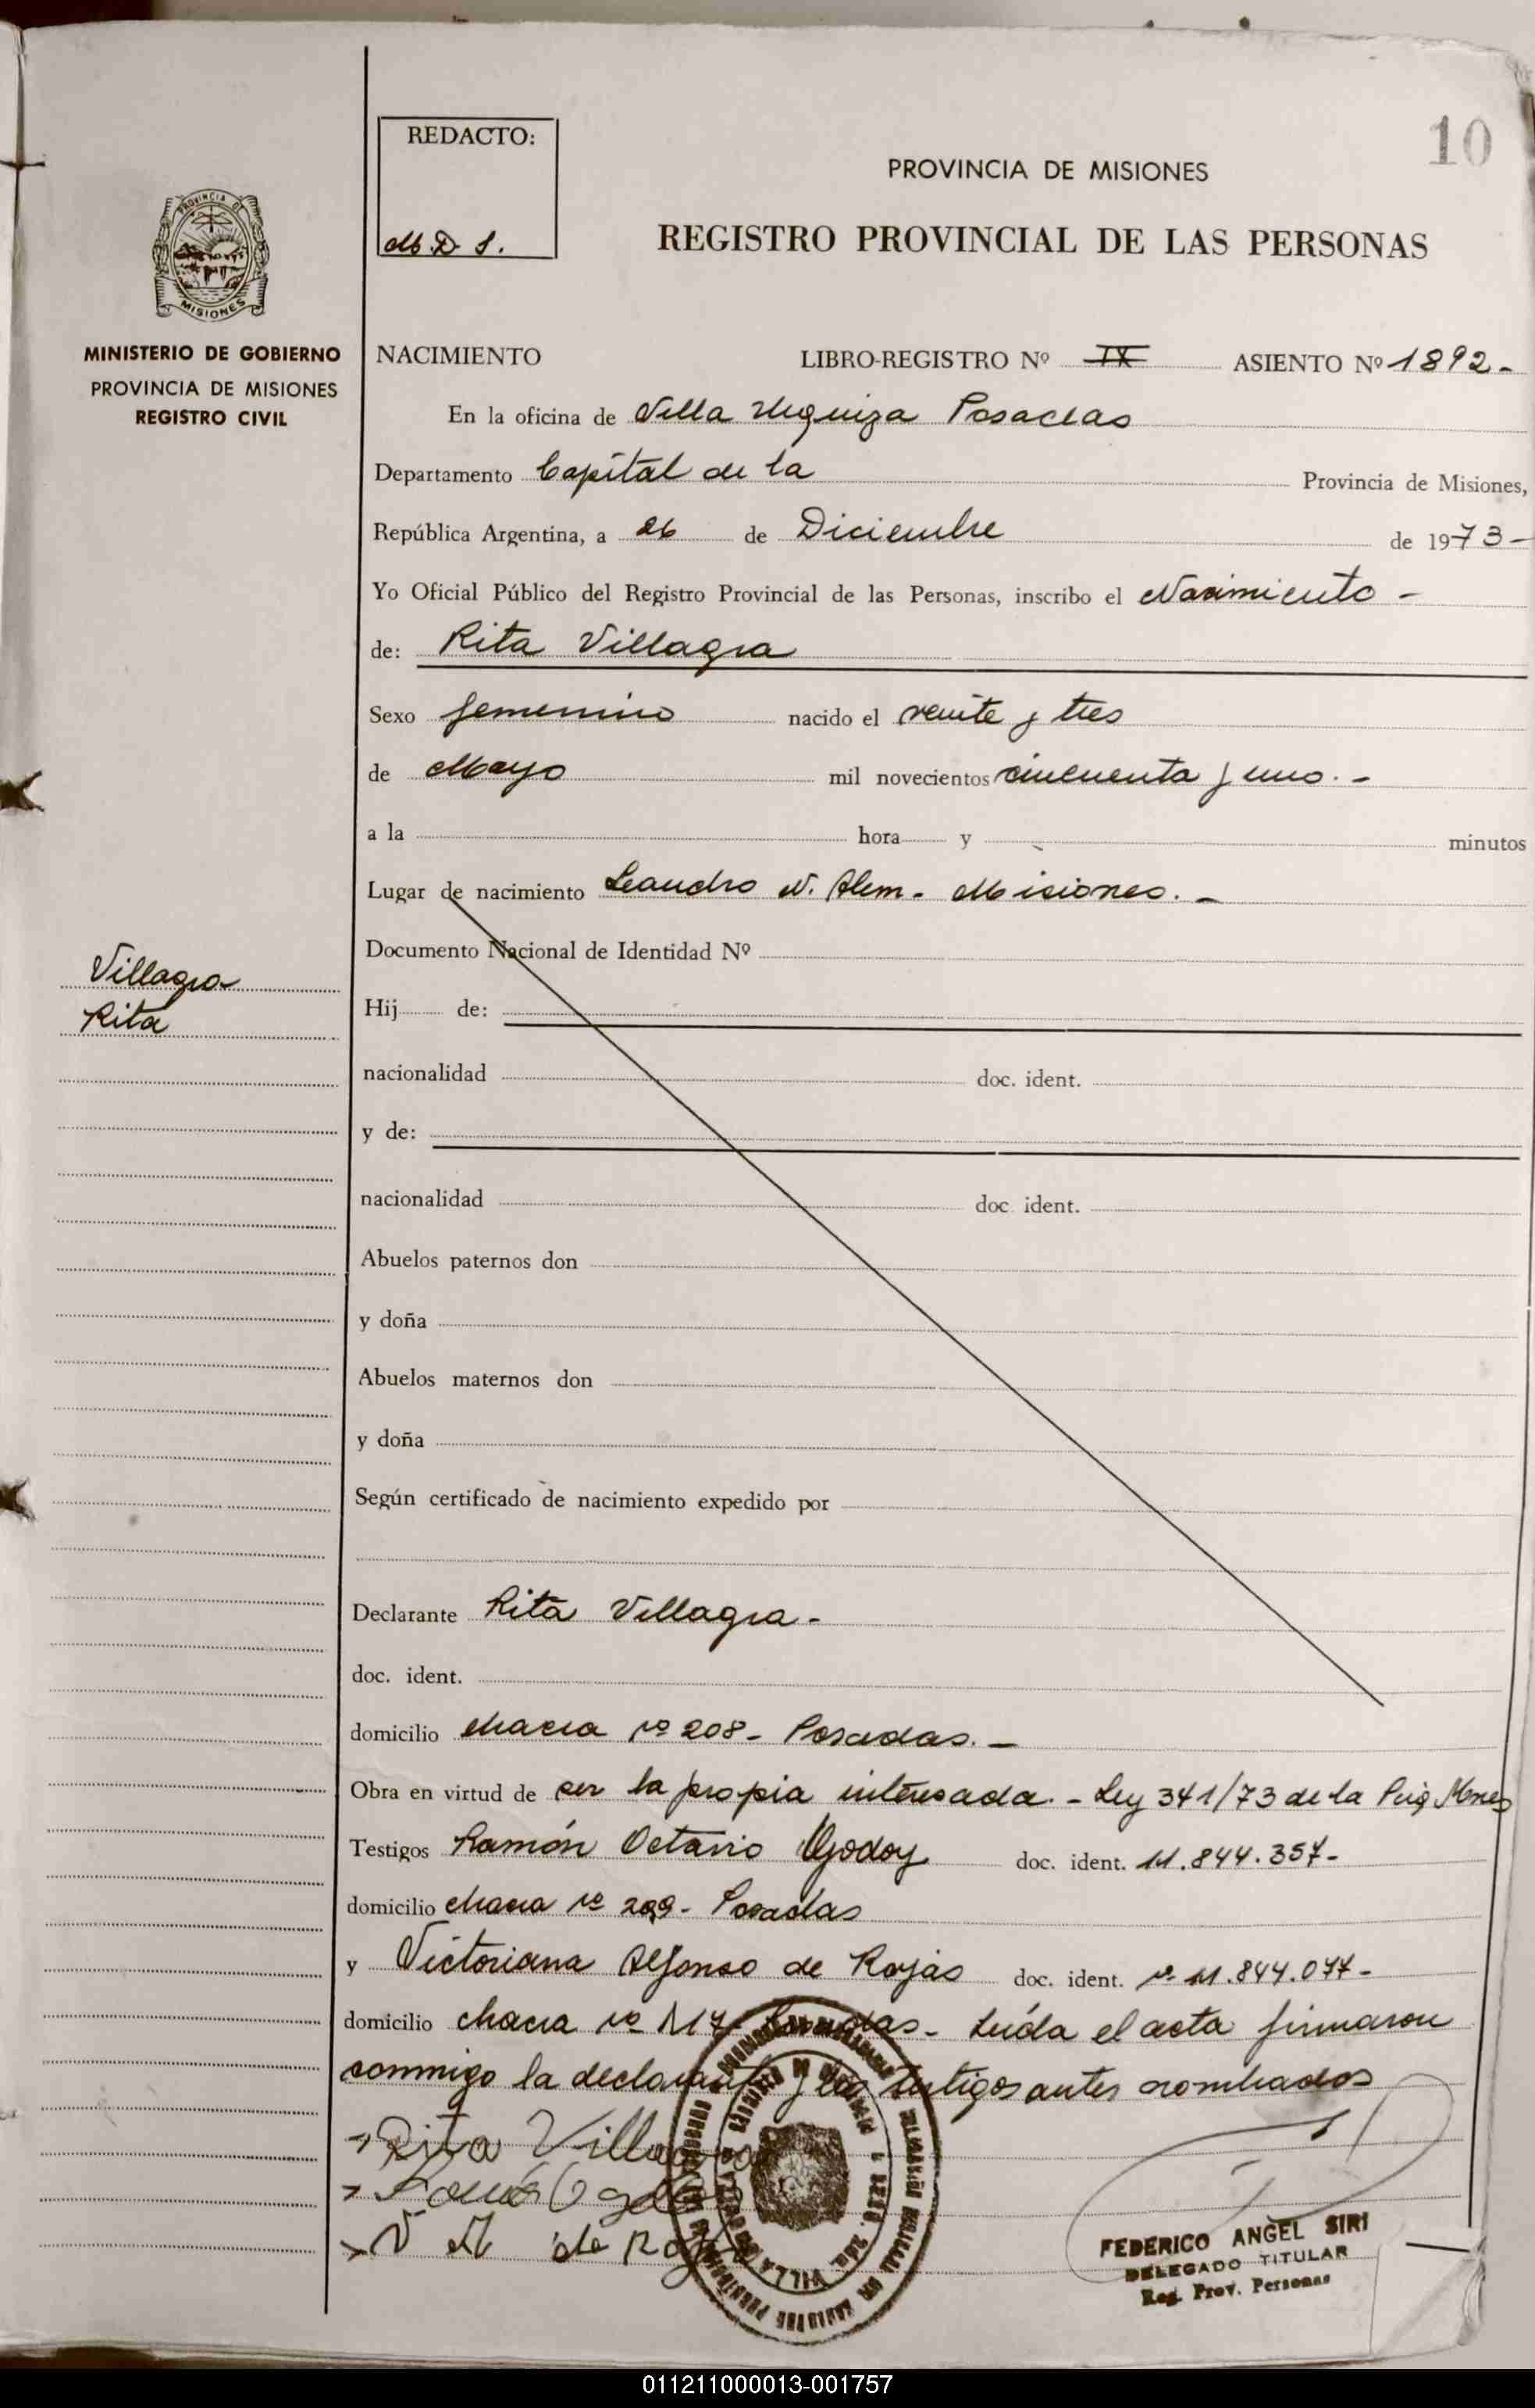 10
REDACTO:
M. D. S.
PROVINCIA DE MISIONES
REGISTRO PROVINCIAL DE LAS PERSONAS
PROVINCIA DE
MISIONES
MINISTERIO DE GOBIERNO
PROVINCIA DE MISIONES
REGISTRO CIVIL
NACIMIENTO LIBRO-REGISTRO Nº IX ASIENTO Nº 1892-
En la oficina de Villa Urquiza Posadas
Departamento Capital de la Provincia de Misiones,
República Argentina, a 26 de Diciembre de 1973-
Yo Oficial Público del Registro Provincial de las Personas, inscribo el Nacimiento -
de: Rita Villagra
Sexo femenino nacido el veinte y tres
de Mayo mil novecientos cincuenta y uno.-
a la hora y minutos
Lugar de nacimiento Leandro N. Alem - Misiones. -
Documento Nacional de Identidad Nº
Villagra
Rita
Hij de:
nacionalidad doc. ident.
y de:
nacionalidad doc ident.
Abuelos paternos don
y doña
Abuelos maternos don
y doña
Según certificado de nacimiento expedido por
Declarante Rita Villagra -
doc. ident.
domicilio chacra nº 208- Posadas. -
Obra en virtud de ser la propia interesada. - Ley 341/73 de la Pcia Mnes
Testigos Ramón Octavio Godoy doc. ident. 11.844.357-
domicilio chacra nº 209- Posadas
y Victoriana Alfonso de Rojas doc. ident. nº 11.844.077-
domicilio chacra nº 117- Posadas - Leída el acta firmaron
conmigo la declarante y los testigos antes nombrados
Rita Villagra
V A de Rojas
FEDERICO ANGEL SIRI
DELEGADO TITULAR
Reg. Prov. Personas
011211000013-001757